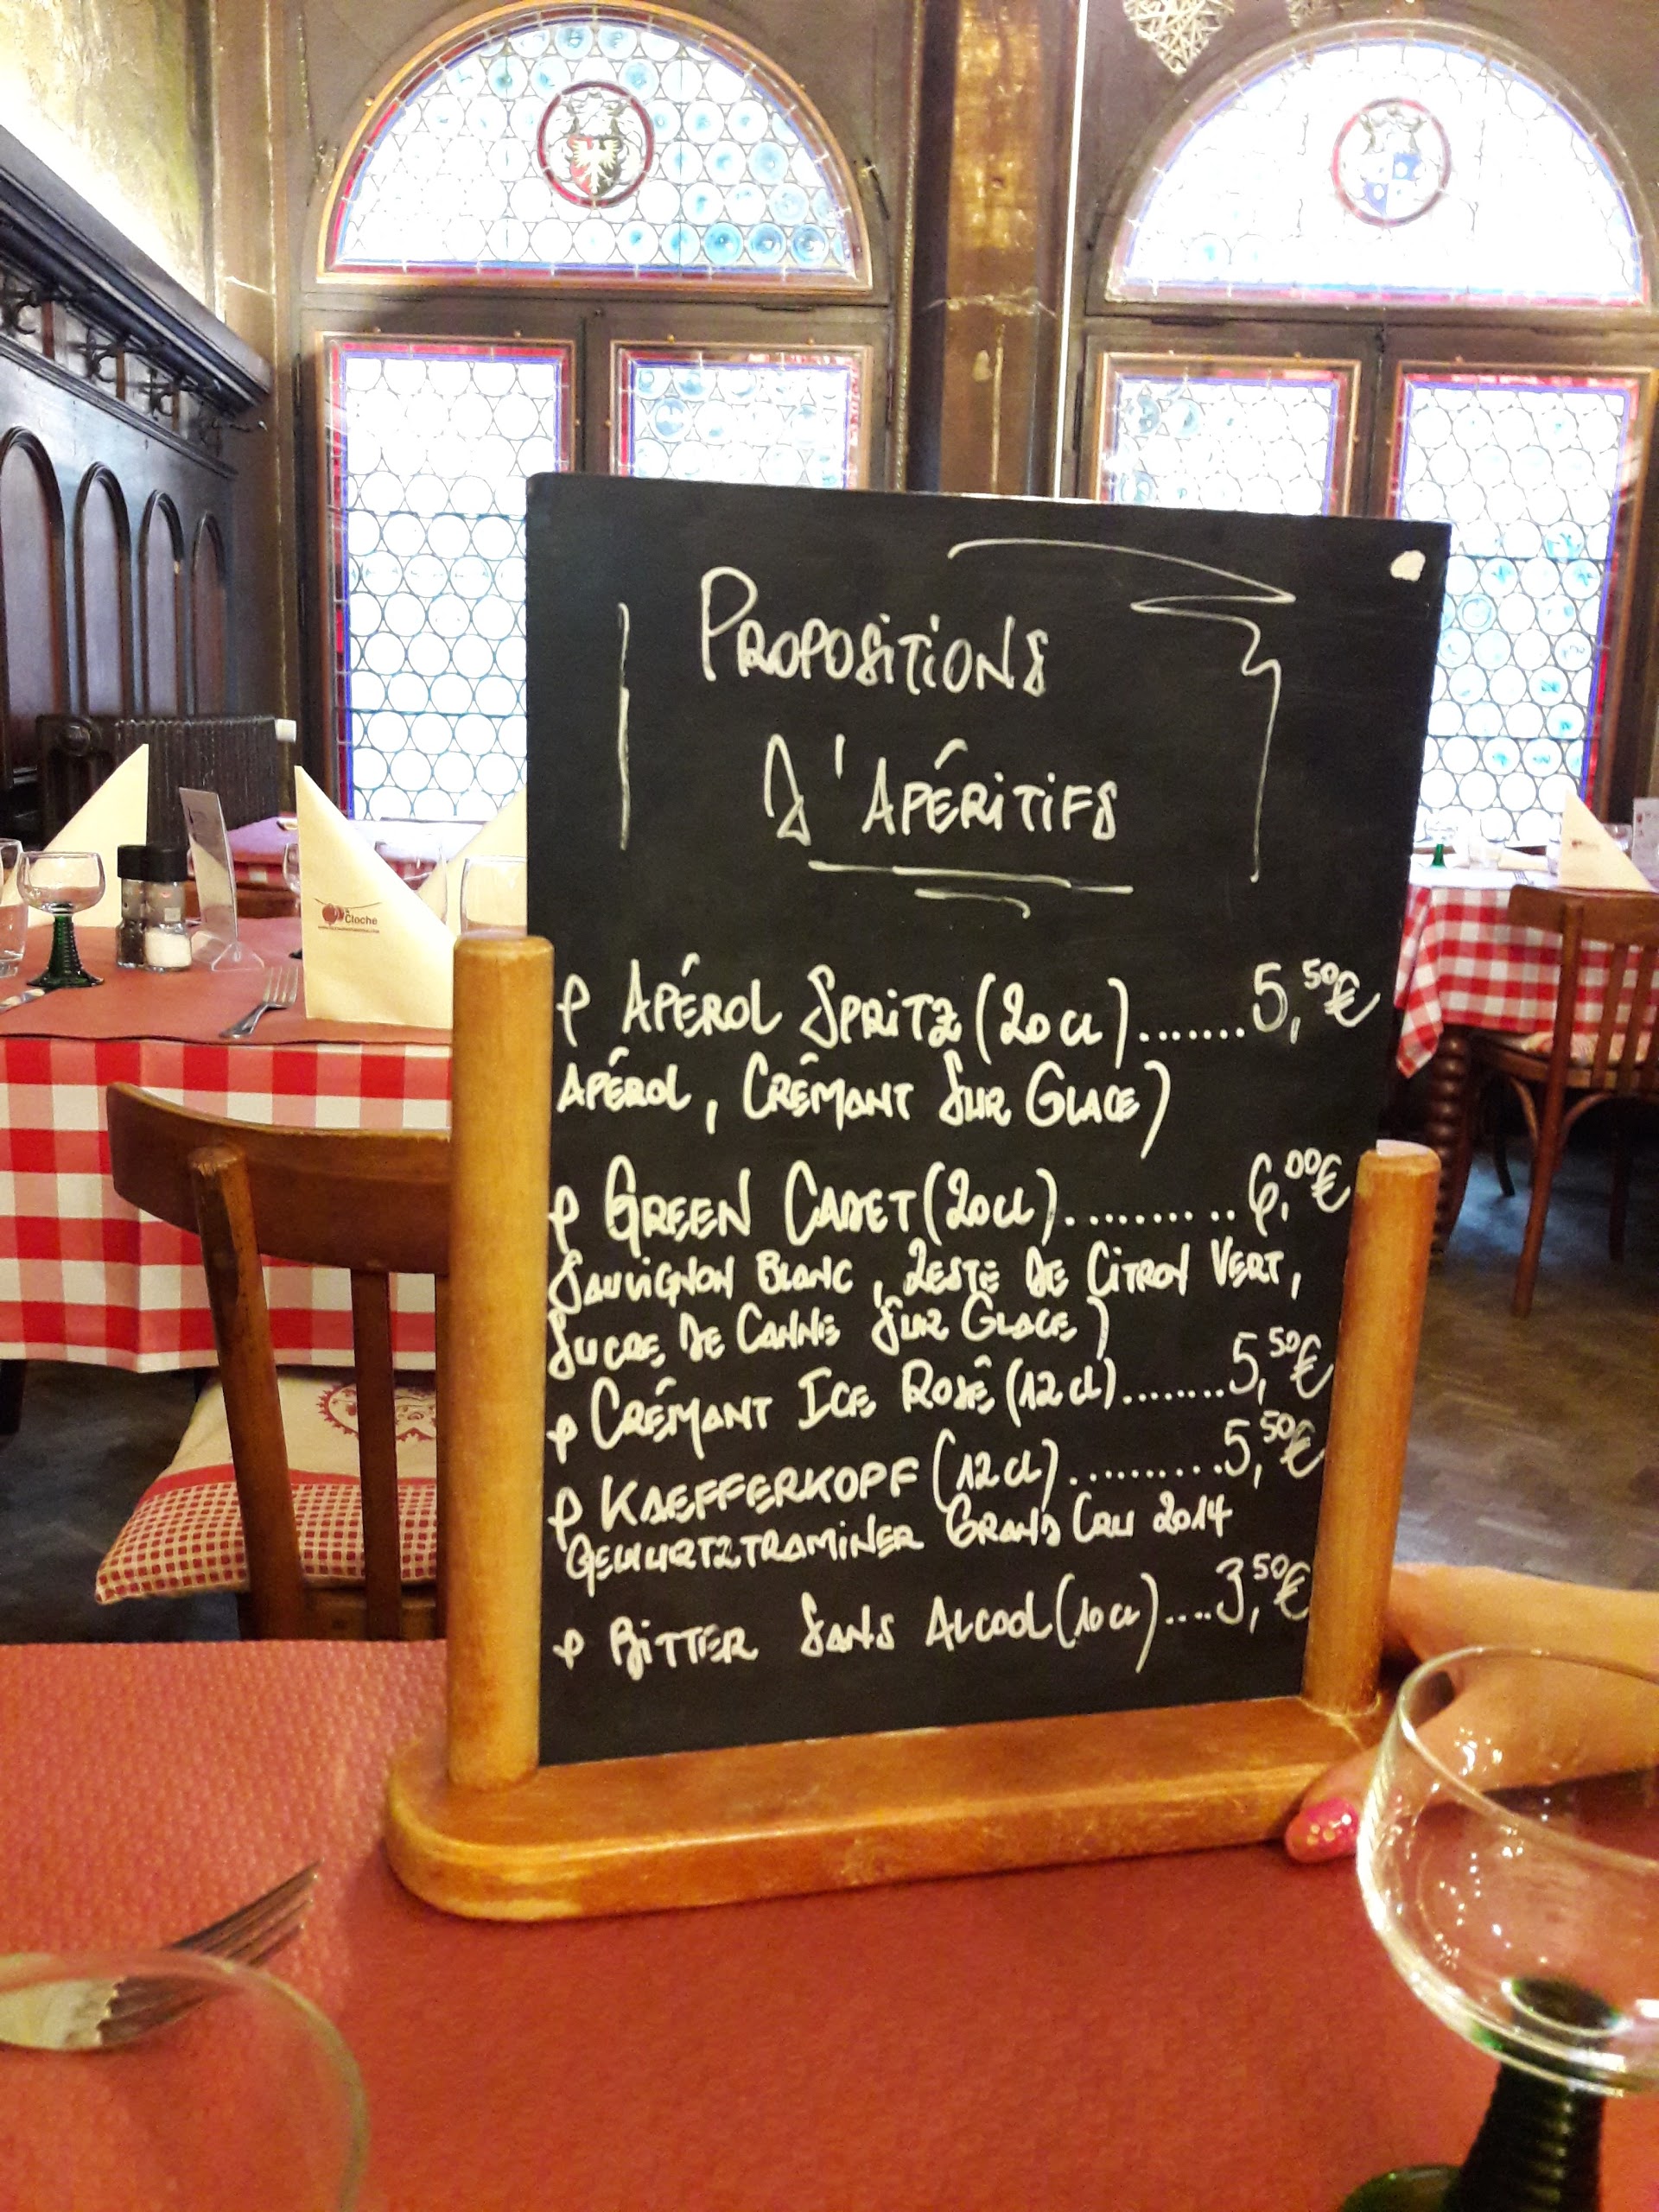 Propositions
d'Apéritifs
Apérol Spritz (20 cl).......5,50€
Apérol, Crémant sur Glace)
Green Cadet (20cl)...........6,00€
Sauvignon Blanc, Zeste de Citron Vert,
Sucre de Canne sur Glace)
Crémant Ice Rosé (12 cl)........5,50€
Kaefferkopf (12 cl)..........5,50€
Gewurtztraminer Grand Cru 2014
Bitter sans Alcool (10 cl)....3,50€
Cloche